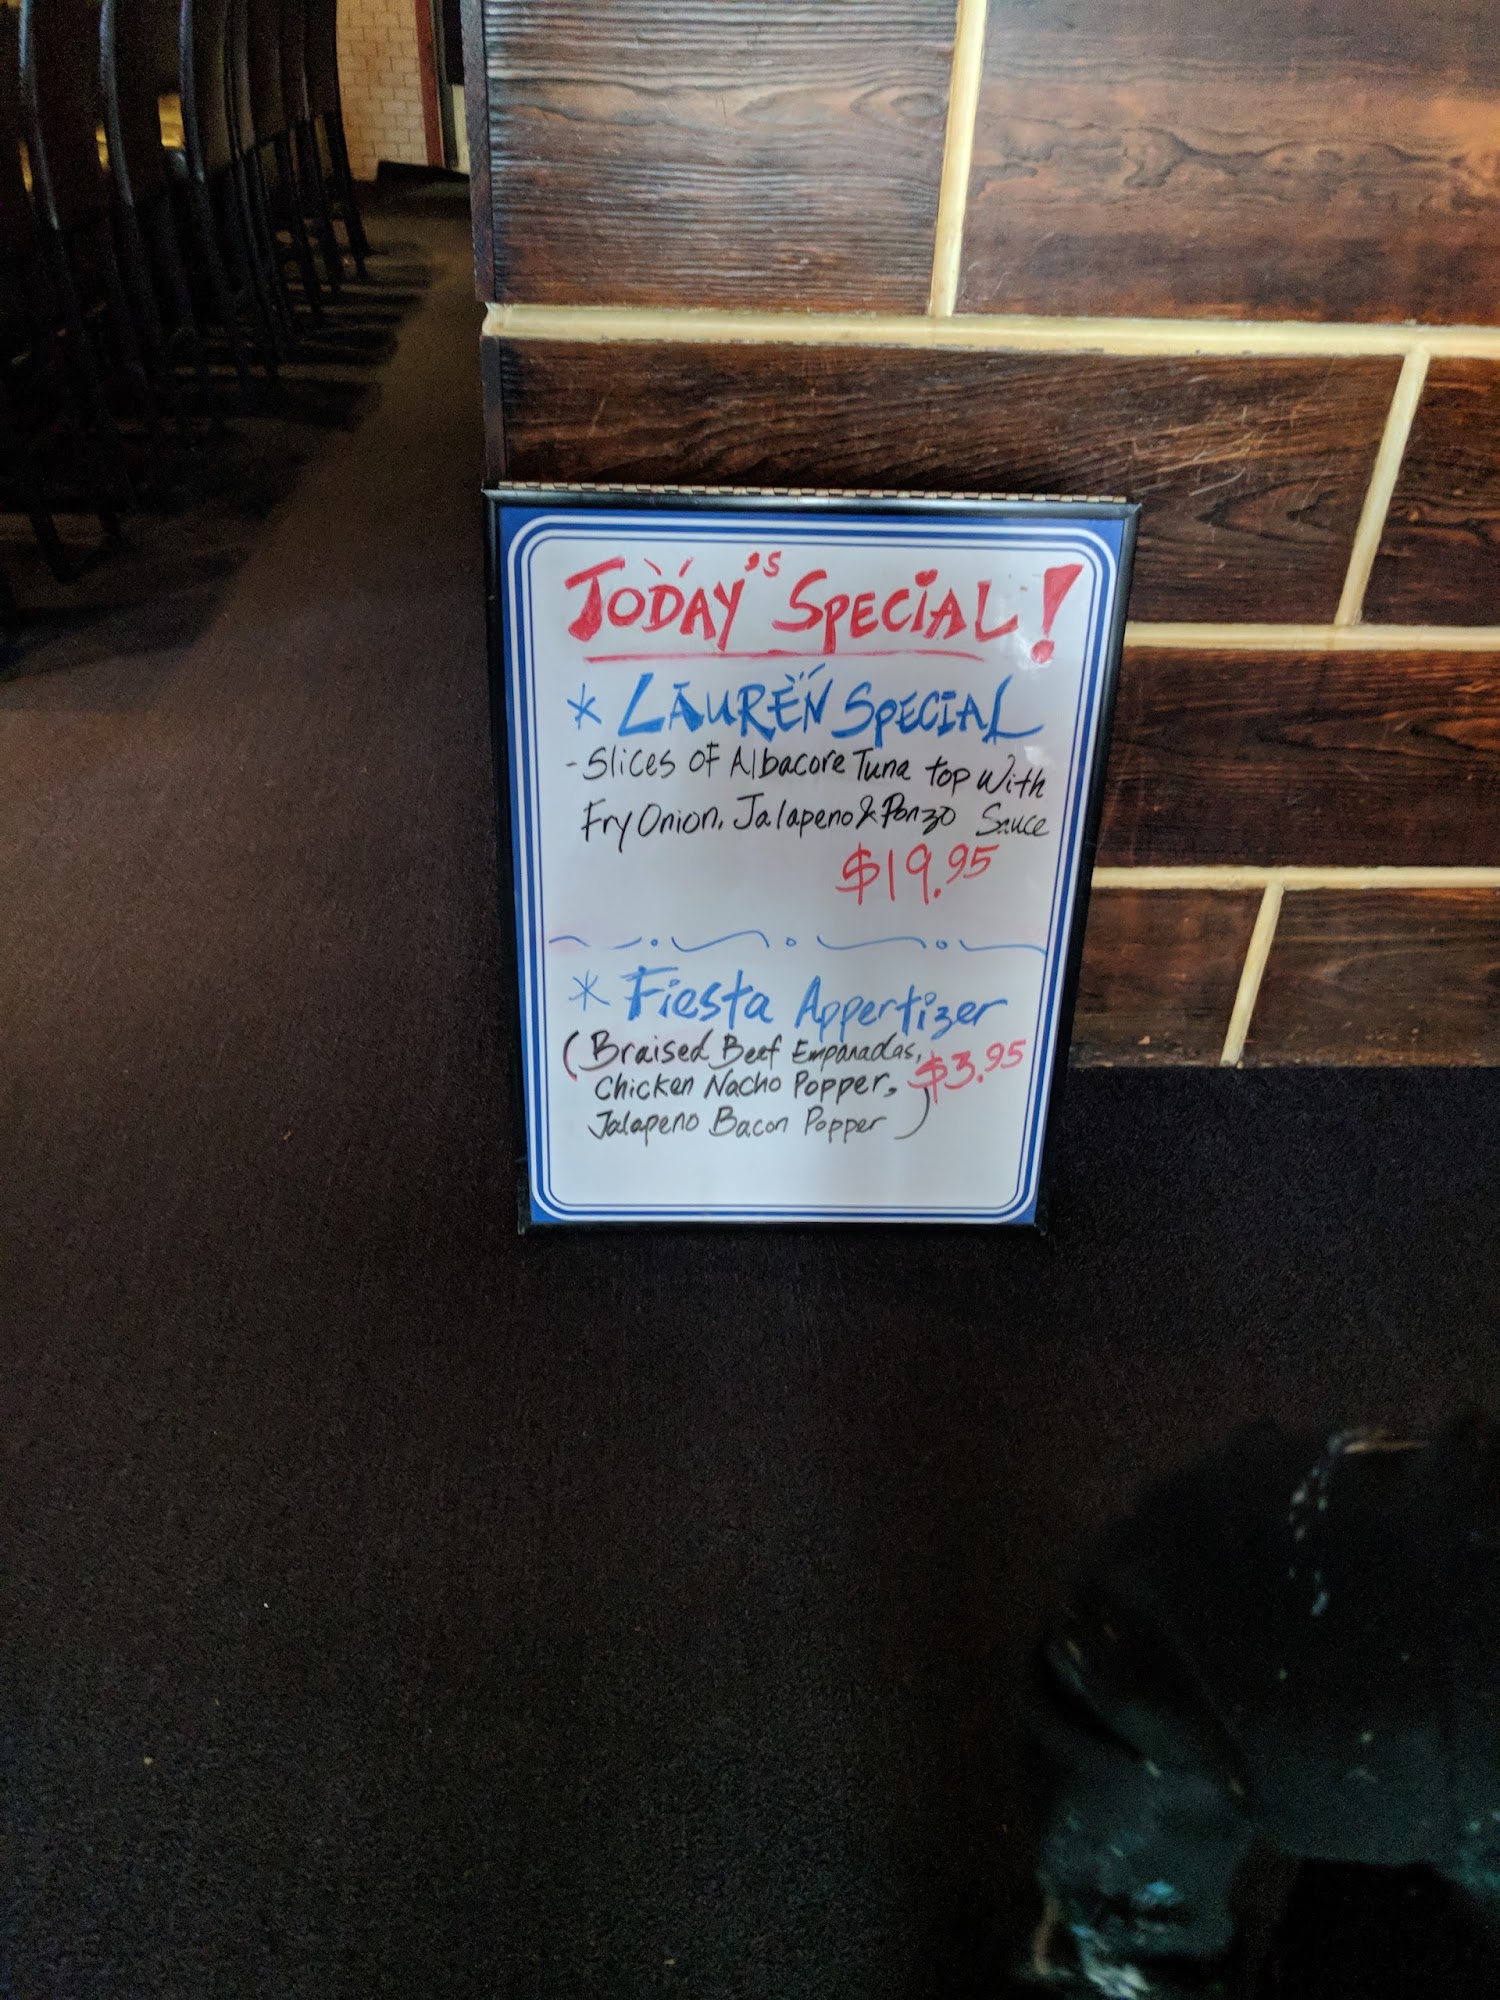 TODAY'S SPECIAL!
* LAUREN SPECIAL
- Slices OF Albacore Tuna top With
Fry Onion, Jalapeno & Ponzo Sauce
$19.95
* Fiesta Appertizer
(Braised Beef Empanadas, $3.95
Chicken Nacho Popper,
Jalapeno Bacon Popper)